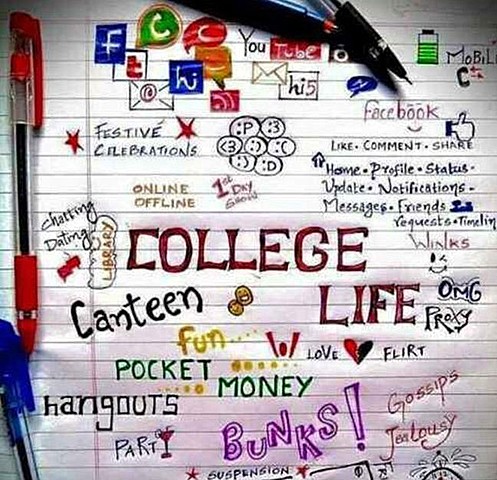 f
You Tube
t
hi
hi5
@
MOBIL
C++
facebook
LIKE • COMMENT • SHARE
Home • Profile • Status •
Update • Notifications •
Messages • Friends
requests • Timelin
FESTIVE
CELEBRATIONS
:P :3
ONLINE
OFFLINE
1st
DAY
Chatting
Dating
LIBRARY
COLLEGE
LIFE
Winks
OMG
PROXY
Canteen
fun...
LOVE
FLIRT
POCKET
MONEY
hangouts
PARTY
BUNKS!
Gossips
Jealousy
SUSPENSION